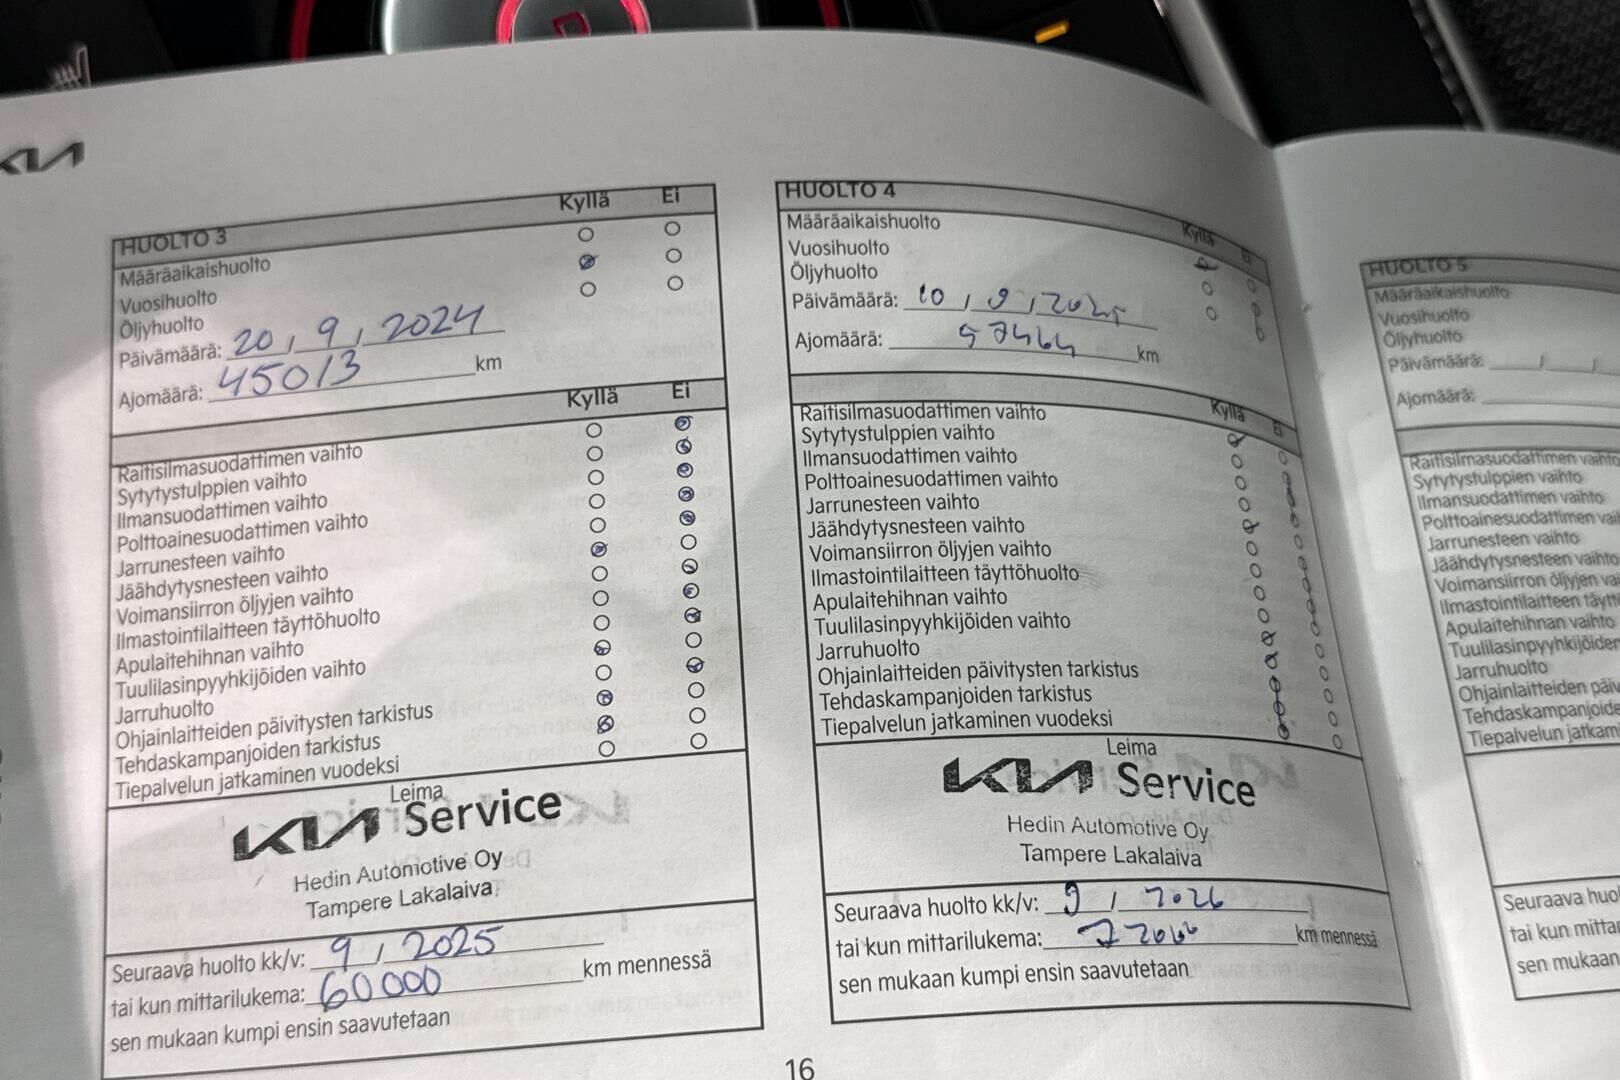 KIA
HUOLTO 3 Kyllä Ei
Määräaikaishuolto
Vuosihuolto
Öljyhuolto
Päivämäärä: 20 / 9 / 2024
Ajomäärä: 45013 km
Kyllä Ei
Raitisilmasuodattimen vaihto
Sytytystulppien vaihto
Ilmansuodattimen vaihto
Polttoainesuodattimen vaihto
Jarrunesteen vaihto
Jäähdytysnesteen vaihto
Voimansiirron öljyjen vaihto
Ilmastointilaitteen täyttöhuolto
Apulaitehihnan vaihto
Tuulilasinpyyhkijöiden vaihto
Jarruhuolto
Ohjainlaitteiden päivitysten tarkistus
Tehdaskampanjoiden tarkistus
Tiepalvelun jatkaminen vuodeksi
Leima
KIA Service
Hedin Automotive Oy
Tampere Lakalaiva
Seuraava huolto kk/v: 9 / 2025
tai kun mittarilukema: 60000 km mennessä
sen mukaan kumpi ensin saavutetaan
HUOLTO 4 Kyllä Ei
Määräaikaishuolto
Vuosihuolto
Öljyhuolto
Päivämäärä: 10 / 9 / 2025
Ajomäärä: 57464 km
Kyllä Ei
Raitisilmasuodattimen vaihto
Sytytystulppien vaihto
Ilmansuodattimen vaihto
Polttoainesuodattimen vaihto
Jarrunesteen vaihto
Jäähdytysnesteen vaihto
Voimansiirron öljyjen vaihto
Ilmastointilaitteen täyttöhuolto
Apulaitehihnan vaihto
Tuulilasinpyyhkijöiden vaihto
Jarruhuolto
Ohjainlaitteiden päivitysten tarkistus
Tehdaskampanjoiden tarkistus
Tiepalvelun jatkaminen vuodeksi
Leima
KIA Service
Hedin Automotive Oy
Tampere Lakalaiva
Seuraava huolto kk/v: 9 / 2026
tai kun mittarilukema: km mennessä
sen mukaan kumpi ensin saavutetaan
16
HUOLTO 5
Määräaikaishuolto
Vuosihuolto
Öljyhuolto
Päivämäärä: / /
Ajomäärä:
Raitisilmasuodattimen vaihto
Sytytystulppien vaihto
Ilmansuodattimen vaihto
Polttoainesuodattimen vai
Jarrunesteen vaihto
Jäähdytysnesteen vaihto
Voimansiirron öljyjen va
Ilmastointilaitteen täytt
Apulaitehihnan vaihto
Tuulilasinpyyhkijöiden
Jarruhuolto
Ohjainlaitteiden päiv
Tehdaskampanjoide
Tiepalvelun jatkam
Seuraava huo
tai kun mittar
sen mukaan